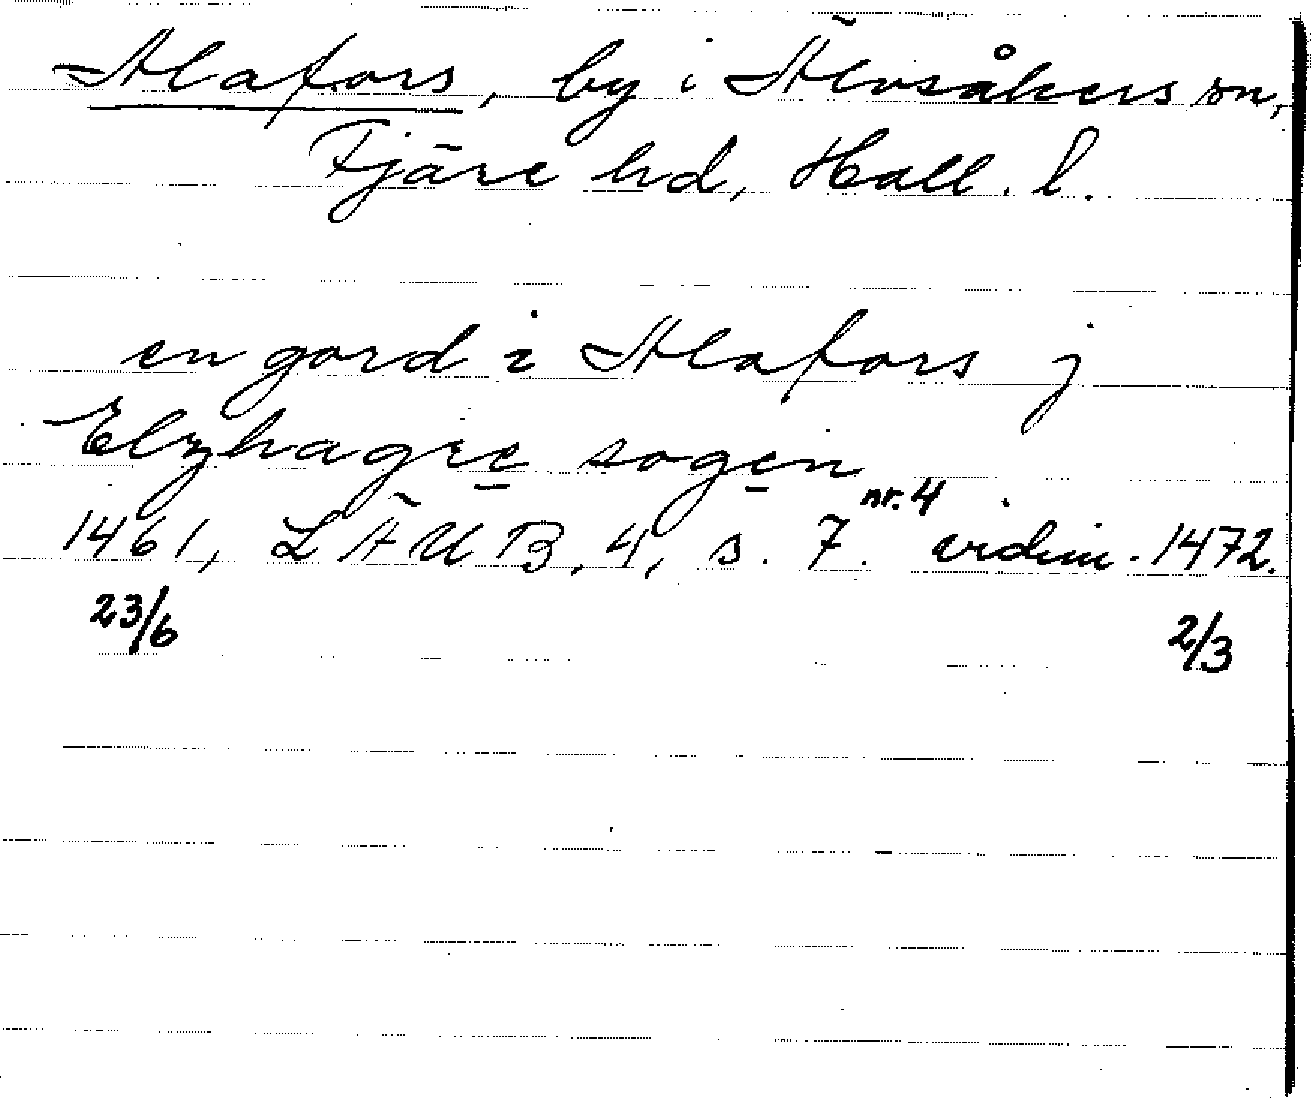 Alafors, by i Älvsåkers sn,
Fjäre hd, Hall. l.
en gord i Alafors j
Elzhagre sogen
1461, LÄUB, 4, s. 7. nr. 4 vidim. 1472.
23/6 2/3